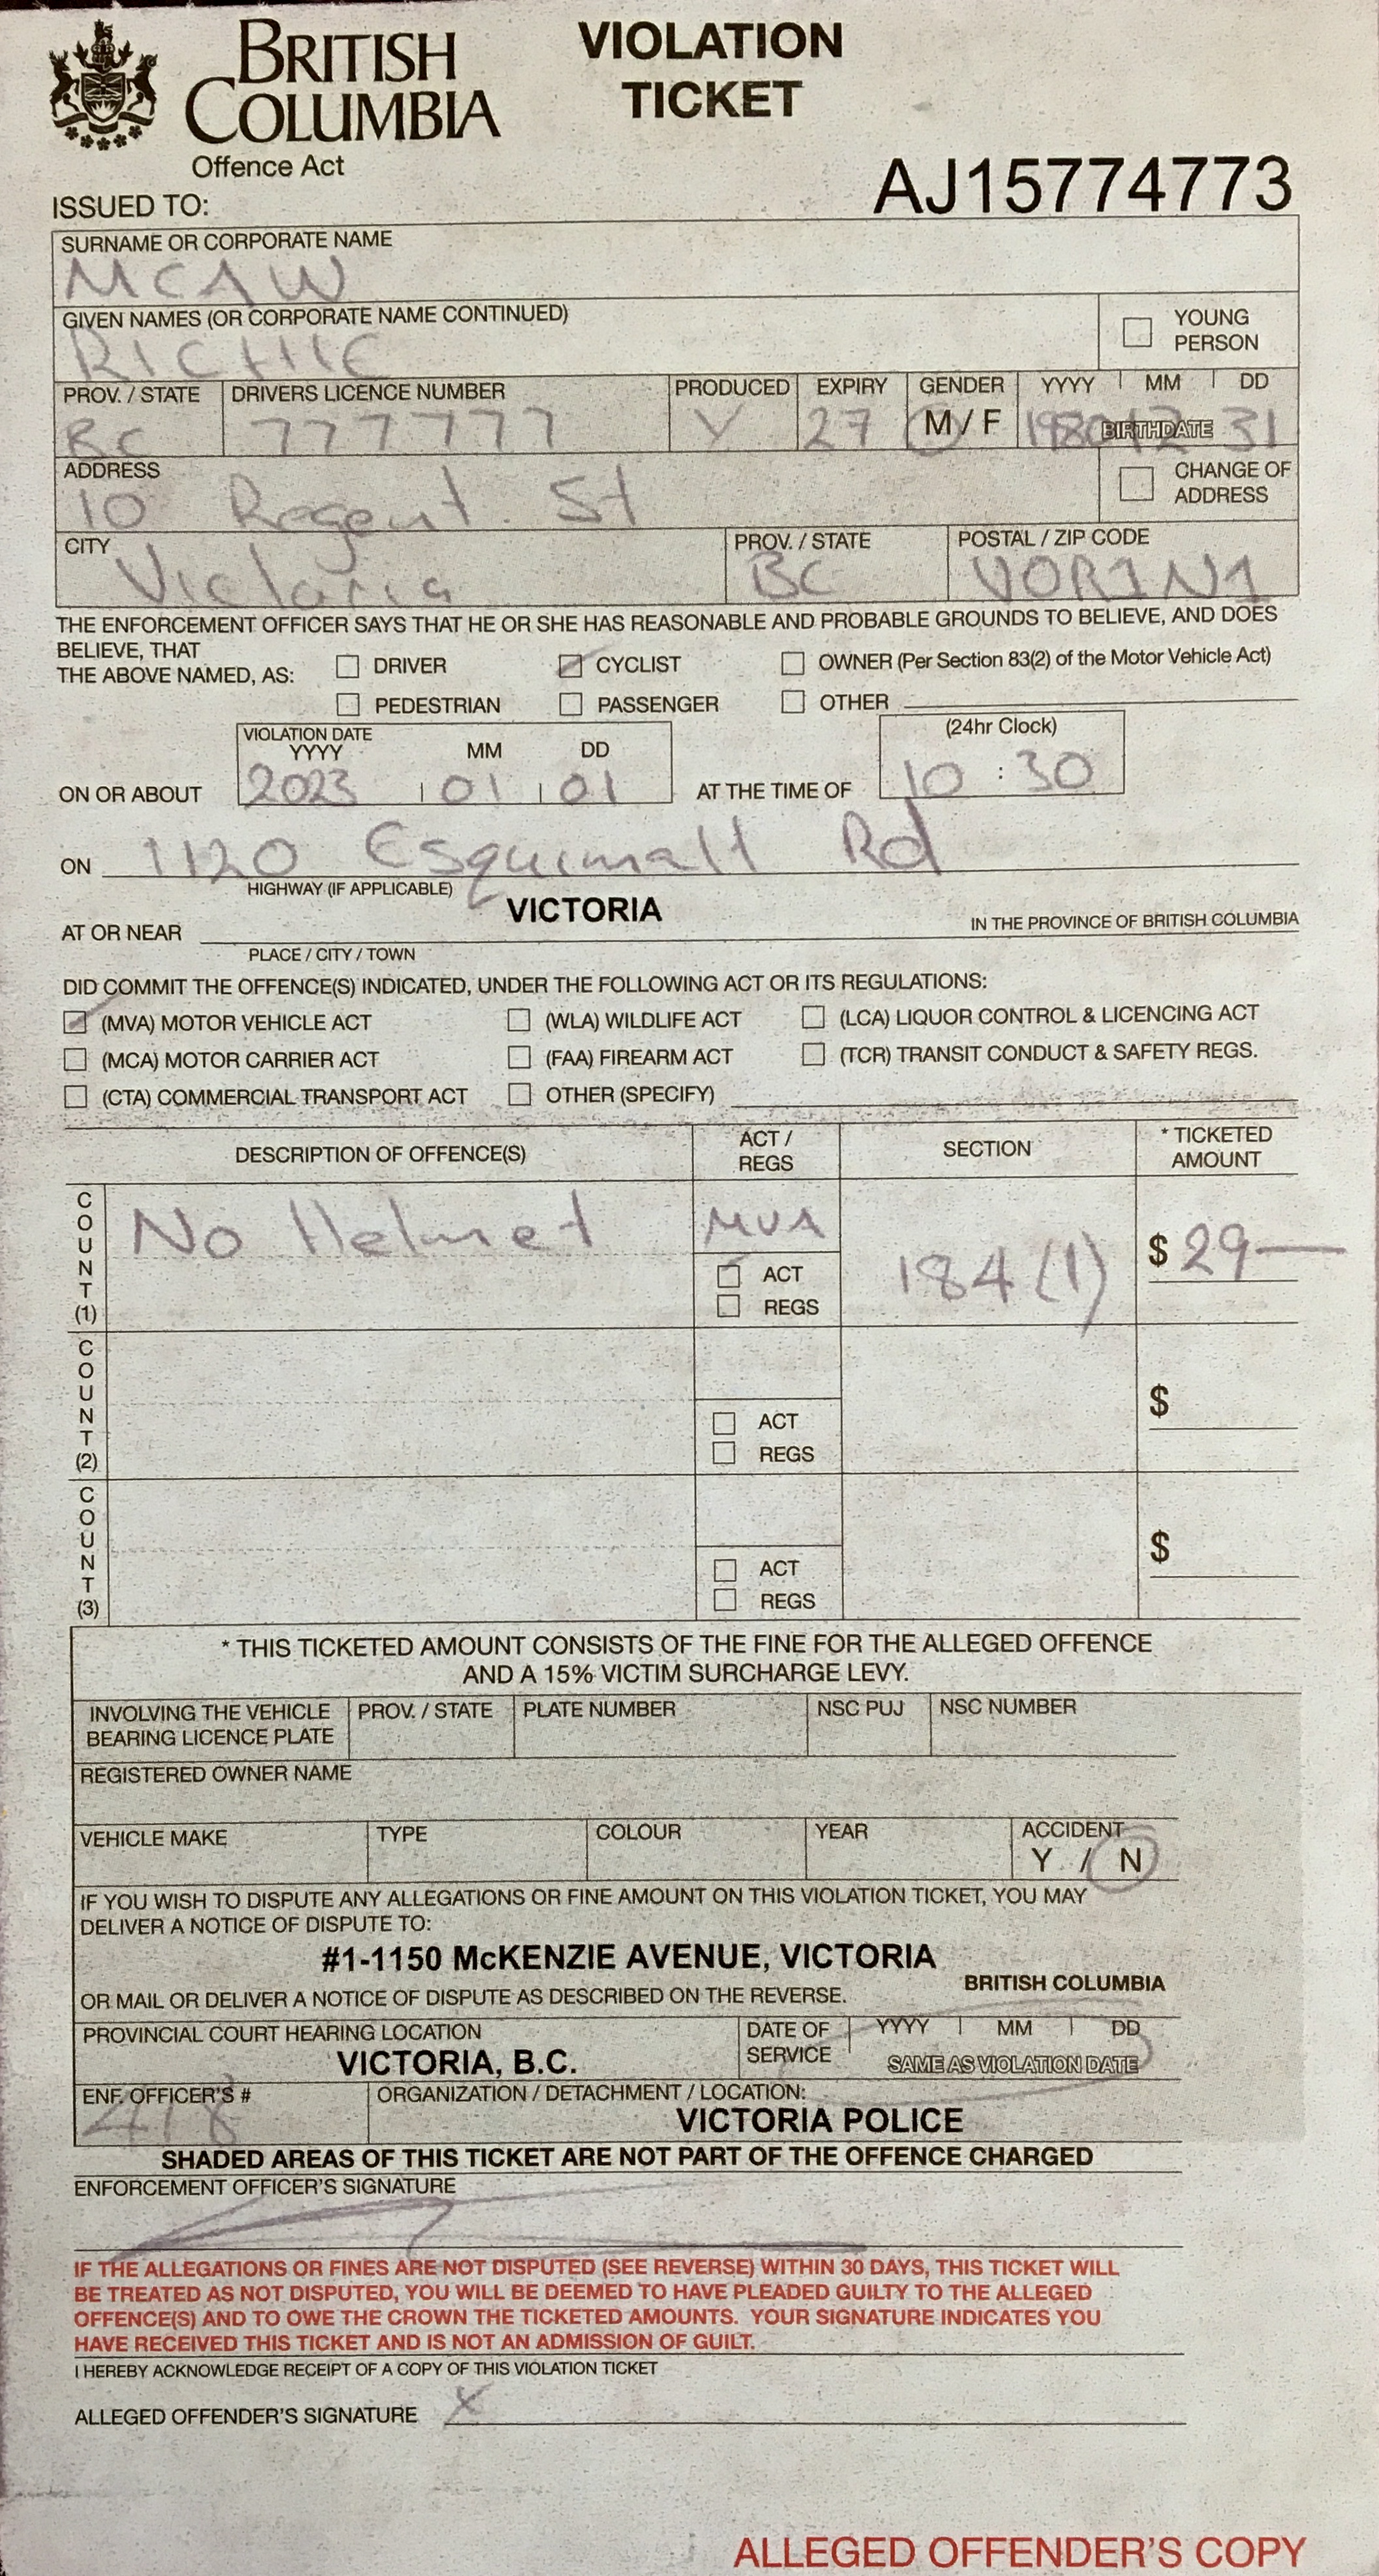 BRITISH
COLUMBIA
Offence Act
VIOLATION
TICKET
AJ15774773
ISSUED TO:
SURNAME OR CORPORATE NAME
MCAW
GIVEN NAMES (OR CORPORATE NAME CONTINUED)
RICHIE
YOUNG
PERSON
PROV. / STATE DRIVERS LICENCE NUMBER PRODUCED EXPIRY GENDER YYYY MM DD
BC 777777 Y 27 M / F 1980 12 31
BIRTHDATE
ADDRESS
10 Regent St
CHANGE OF
ADDRESS
CITY PROV. / STATE POSTAL / ZIP CODE
Victoria BC V0R1N1
THE ENFORCEMENT OFFICER SAYS THAT HE OR SHE HAS REASONABLE AND PROBABLE GROUNDS TO BELIEVE, AND DOES
BELIEVE, THAT
THE ABOVE NAMED, AS: DRIVER CYCLIST OWNER (Per Section 83(2) of the Motor Vehicle Act)
PEDESTRIAN PASSENGER OTHER
VIOLATION DATE (24hr Clock)
YYYY MM DD
ON OR ABOUT 2023 01 01 AT THE TIME OF 10 : 30
ON 1120 Esquimalt Rd
HIGHWAY (IF APPLICABLE)
AT OR NEAR VICTORIA IN THE PROVINCE OF BRITISH COLUMBIA
PLACE / CITY / TOWN
DID COMMIT THE OFFENCE(S) INDICATED, UNDER THE FOLLOWING ACT OR ITS REGULATIONS:
(MVA) MOTOR VEHICLE ACT (WLA) WILDLIFE ACT (LCA) LIQUOR CONTROL & LICENCING ACT
(MCA) MOTOR CARRIER ACT (FAA) FIREARM ACT (TCR) TRANSIT CONDUCT & SAFETY REGS.
(CTA) COMMERCIAL TRANSPORT ACT OTHER (SPECIFY)
DESCRIPTION OF OFFENCE(S) ACT / REGS SECTION * TICKETED AMOUNT
COUNT (1) No Helmet MVA 184(1) $ 29—
ACT
REGS
COUNT (2) $
ACT
REGS
COUNT (3) $
ACT
REGS
* THIS TICKETED AMOUNT CONSISTS OF THE FINE FOR THE ALLEGED OFFENCE
AND A 15% VICTIM SURCHARGE LEVY.
INVOLVING THE VEHICLE
BEARING LICENCE PLATE PROV. / STATE PLATE NUMBER NSC PUJ NSC NUMBER
REGISTERED OWNER NAME
VEHICLE MAKE TYPE COLOUR YEAR ACCIDENT
Y / N
IF YOU WISH TO DISPUTE ANY ALLEGATIONS OR FINE AMOUNT ON THIS VIOLATION TICKET, YOU MAY
DELIVER A NOTICE OF DISPUTE TO:
#1-1150 McKENZIE AVENUE, VICTORIA
BRITISH COLUMBIA
OR MAIL OR DELIVER A NOTICE OF DISPUTE AS DESCRIBED ON THE REVERSE.
PROVINCIAL COURT HEARING LOCATION DATE OF SERVICE YYYY MM DD
VICTORIA, B.C. SAME AS VIOLATION DATE
ENF. OFFICER'S # ORGANIZATION / DETACHMENT / LOCATION:
418 VICTORIA POLICE
SHADED AREAS OF THIS TICKET ARE NOT PART OF THE OFFENCE CHARGED
ENFORCEMENT OFFICER'S SIGNATURE
IF THE ALLEGATIONS OR FINES ARE NOT DISPUTED (SEE REVERSE) WITHIN 30 DAYS, THIS TICKET WILL
BE TREATED AS NOT DISPUTED, YOU WILL BE DEEMED TO HAVE PLEADED GUILTY TO THE ALLEGED
OFFENCE(S) AND TO OWE THE CROWN THE TICKETED AMOUNTS. YOUR SIGNATURE INDICATES YOU
HAVE RECEIVED THIS TICKET AND IS NOT AN ADMISSION OF GUILT.
I HEREBY ACKNOWLEDGE RECEIPT OF A COPY OF THIS VIOLATION TICKET
ALLEGED OFFENDER'S SIGNATURE X
ALLEGED OFFENDER'S COPY